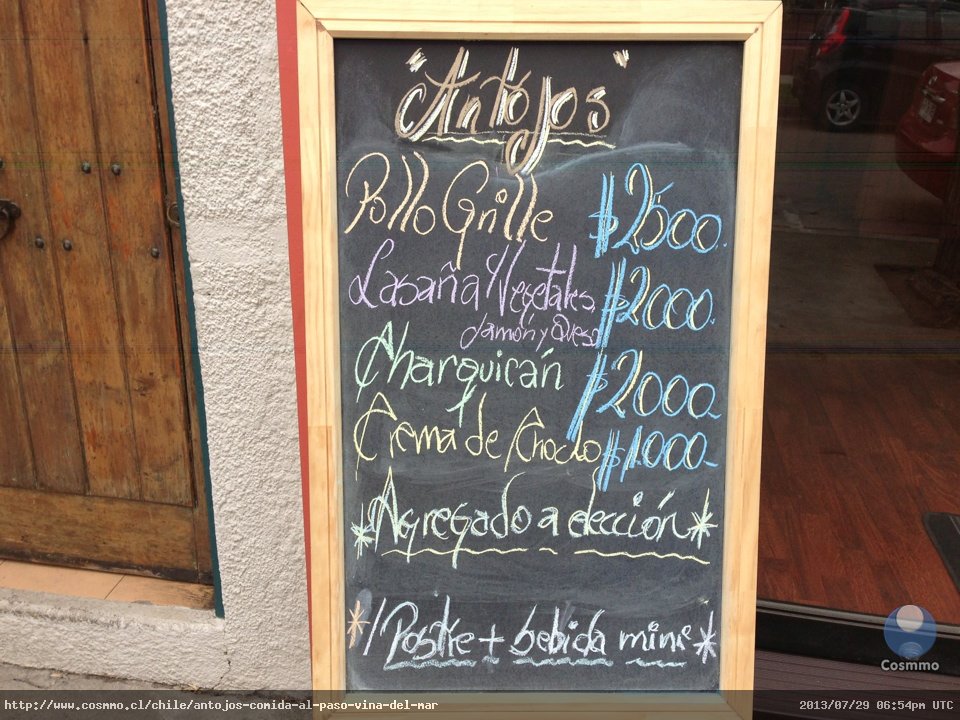 "Antojos"
Pollo Grille $2500.
Lasaña Vegetales, $2000.
Jamón y Queso
Charquicán $2000-
Crema de Choclo $1.000-
*Agregado a elección*
*/Postre + bebida mini*
Cosmmo
http://www.cosmmo.cl/chile/antojos-comida-al-paso-vina-del-mar 2013/07/29 06:54pm UTC